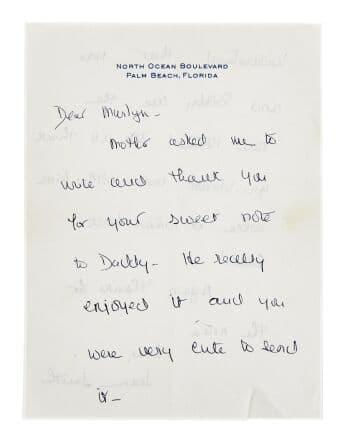 NORTH OCEAN BOULEVARD
PALM BEACH, FLORIDA
Dear Marilyn –
Mother asked me to
write and thank you
for your sweet note
to Daddy – He really
enjoyed it and you
were very cute to send
it –